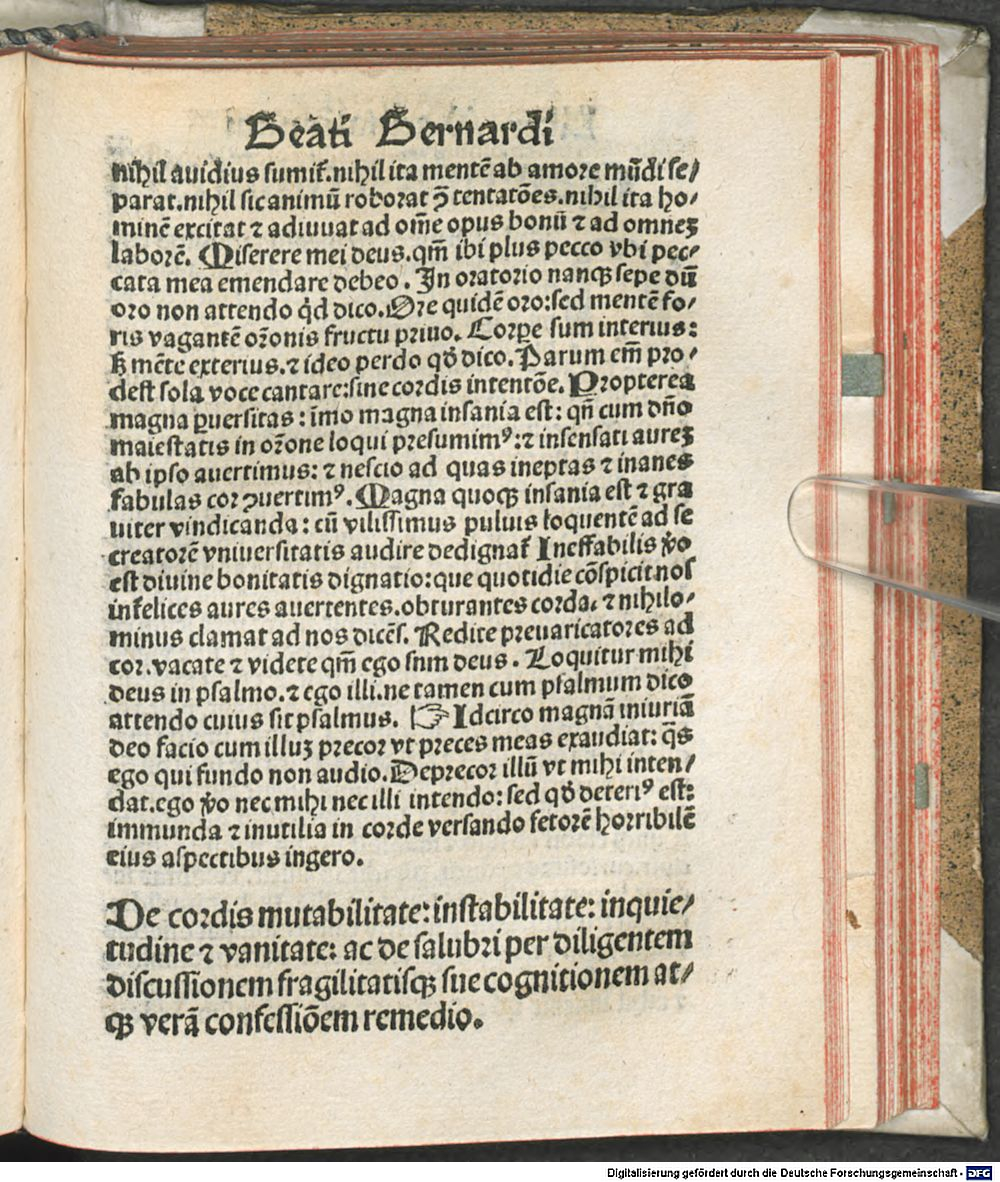 Beati Bernardi
nihil auidius sumit᷑.nihil ita mentē ab amore mūdi se/
parat.nihil sic animū roborat ꝯ̄ tentatōes.nihil ita ho/
minē excitat ⁊ adiuuat ad om̄e opus bonū ⁊ ad omneꝫ
laborē. Miserere mei deus.qm̄ ibi plus pecco vbi pec⸗
cata mea emendare debeo. In oratorio nanqꝫ sepe dū
oro non attendo qd̓ dico. Ore quidē oro:sed mentē fo/
ris vagantē or̄onis fructu priuo. Corꝑe sum interius:
sꝫ mēte exterius.⁊ ideo perdo qd̓ dico. Parum em̄ pro/
dest sola voce cantare:sine cordis intentōe. Propterea
magna ꝑuersitas: īmo magna insania est: qn̄ cum dn̄o
maiestatis in or̄one loqui presumimꝰ:⁊ insensati aureꝫ
ab ipso auertimus: ⁊ nescio ad quas ineptas ⁊ inanes
fabulas cor ꝯuertimꝰ. Magna quoqꝫ insania est ⁊ gra
uiter vindicanda: cū vilissimus puluis loquentē ad se
creatorē vniuersitatis audire dedignat᷑ Ineffabilis ꝟo
est diuine bonitatis dignatio:que quotidie cōspicit nos
infelices aures auertentes.obturantes corda.⁊ nihilo⸗
minus clamat ad nos dicēs. Redite preuaricatores ad
cor.vacate ⁊ videte qm̄ ego snm deus. Loquitur mihi
deus in psalmo.⁊ ego illi.ne tamen cum psalmum dico
attendo cuius sit psalmus. ☞ Idcirco magnā iniuriā
deo facio cum illuꝫ precor vt preces meas exaudiat: q̄s
ego qui fundo non audio. Deprecor illū vt mihi inten/
dat.ego ꝟo nec mihi nec illi intendo: sed qd̓ deteriꝰ est:
immunda ⁊ inutilia in corde versando fetorē horribilē
eius aspectibus ingero.
De cordis mutabilitate: instabilitate: inquie/
tudine ⁊ vanitate: ac de salubri per diligentem
discussionem fragilitatisqꝫ sue cognitionem at⸗
qꝫ verā confessiōem remedio.
Digitalisierung gefördert durch die Deutsche Forschungsgemeinschaft - DFG